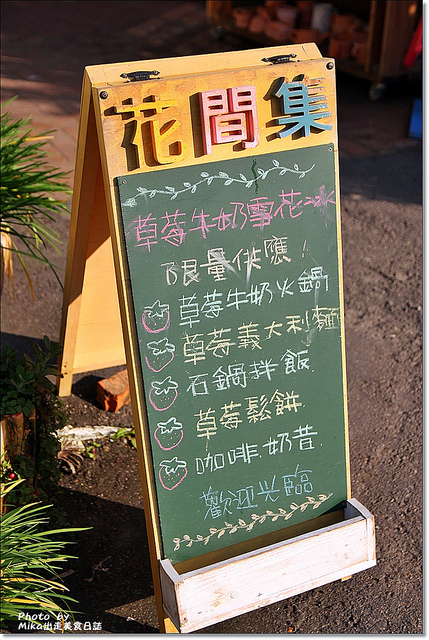 花間集
草莓牛奶雪花冰
限量供應!
草莓牛奶火鍋
草莓義大利麵
石鍋拌飯
草莓鬆餅
咖啡.奶昔
歡迎光臨
Photo by
Mika出走美食日誌